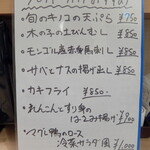 ・旬のキノコの天ぷら ￥750
・木の子の土びんむし ￥850
・モンゴル産
・サバとナスの揚げ出し ￥850
・カキフライ ￥850.
・れんこんとすり身の
はさみ揚げ ￥700
・マグレ鴨のロース
冷菜サラダ風 ￥1,000